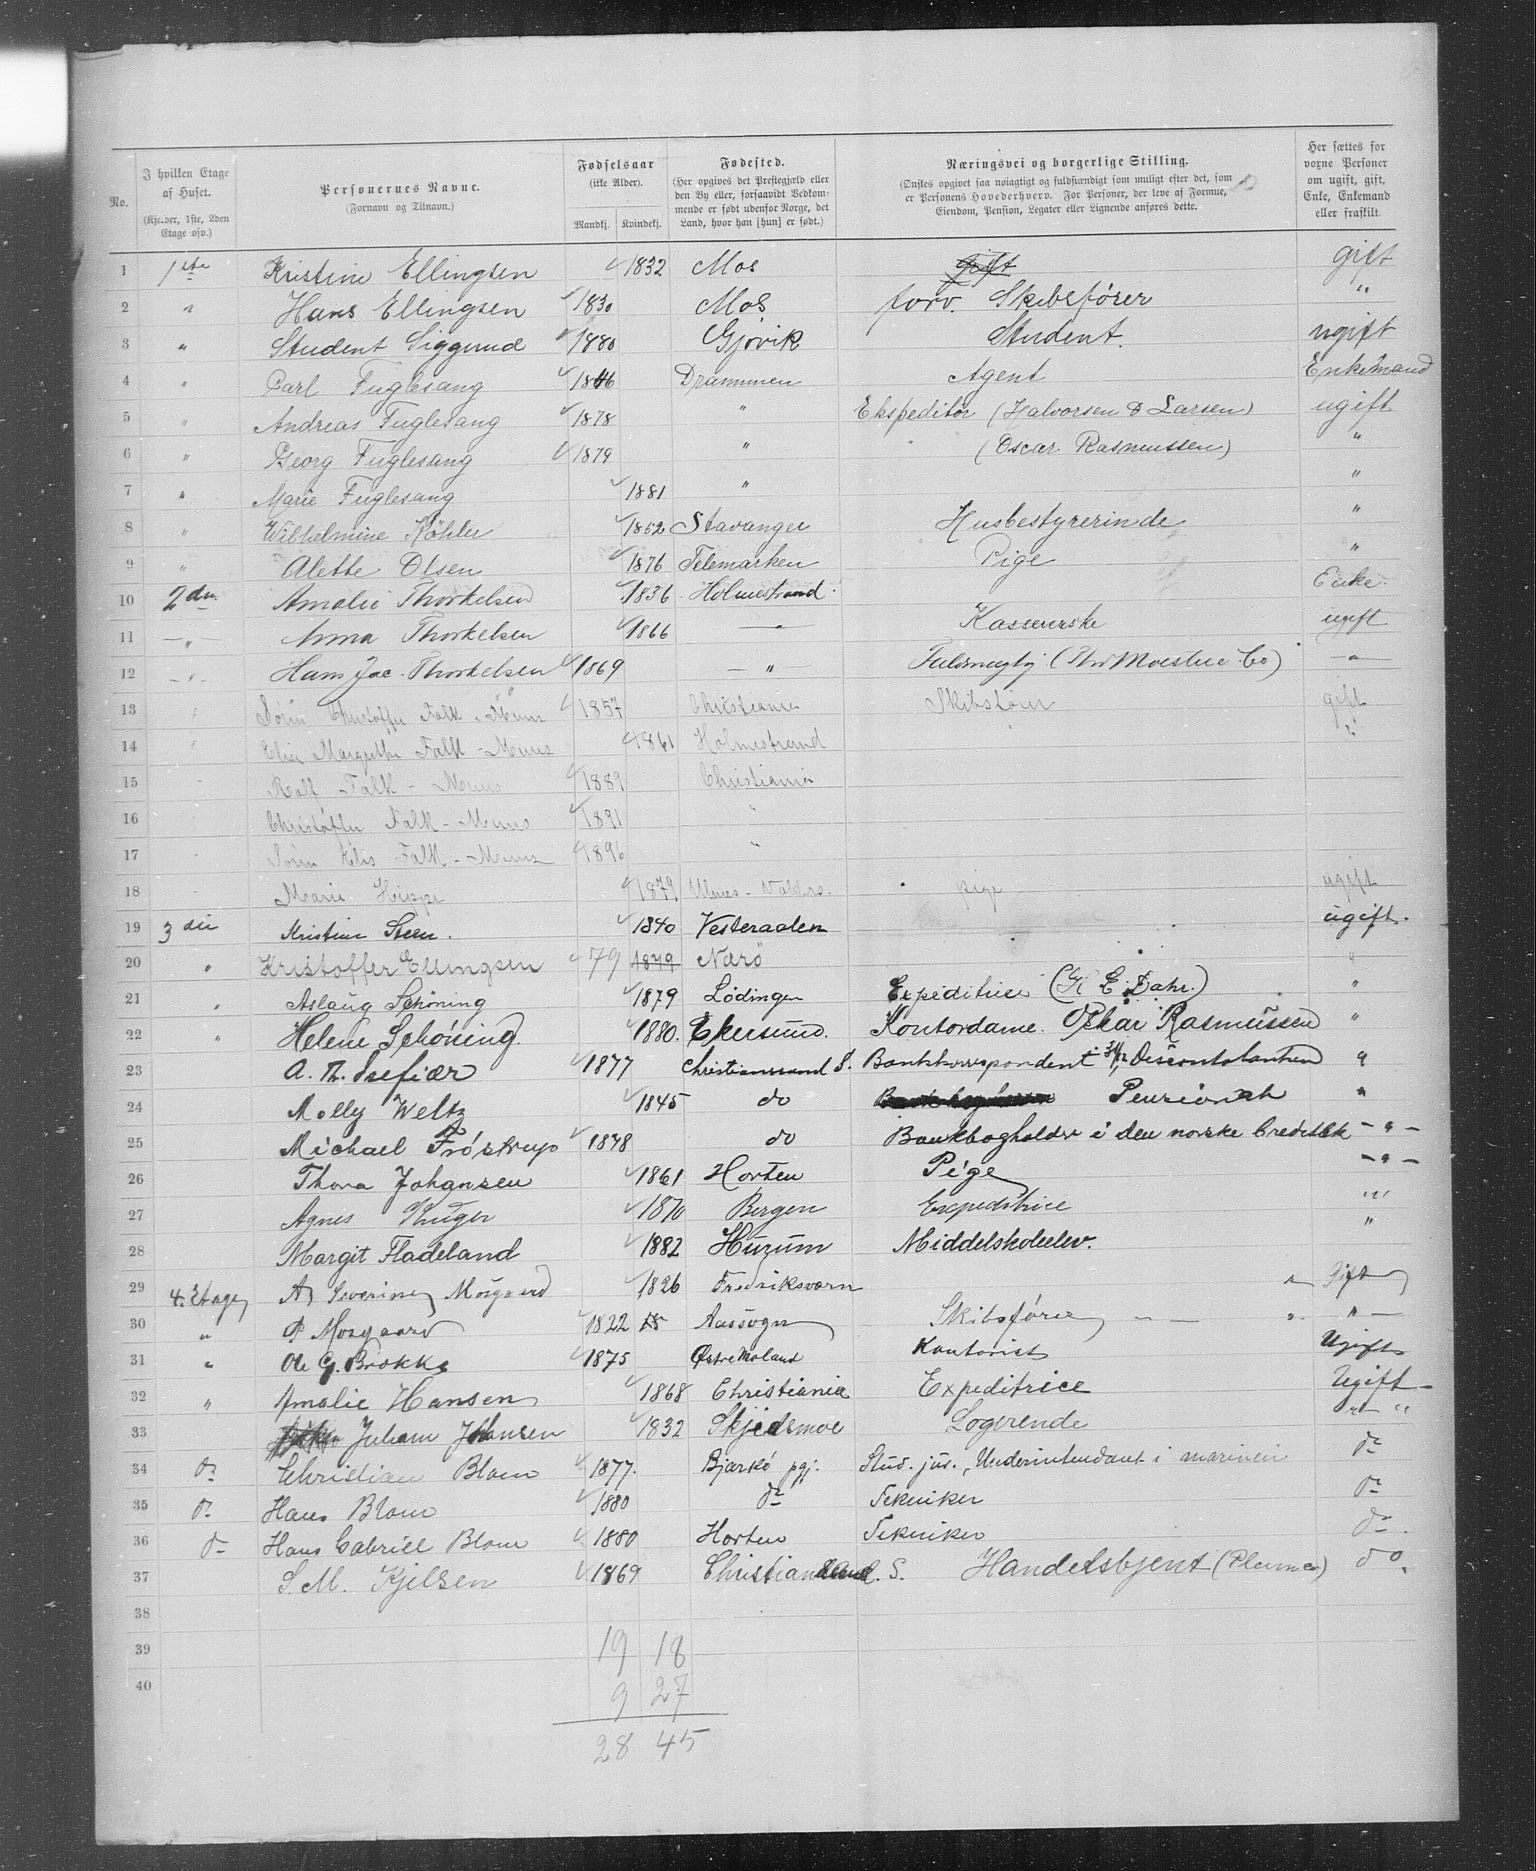 No. | I hvilken Etage af Huset. (Kjelder, 1ste, 2den Etage osv.) | Personernes Navne. (Fornavn og Tilnavn.) | Fødselsaar (ikke Alder). Mandkj. | Kvindekj. | Fødested. (Her opgives det Prestegjæld eller den By eller, forsaavidt Vedkommende er født udenfor Norge, det Land, hvor han [hun] er født.) | Næringsvei og borgerlige Stilling. (Ønskes opgivet saa nøiagtigt og fuldstændigt som muligt efter det, som er Personens Hovederhverv. For Personer, der leve af Formue, Eiendom, Pension, Legater eller Lignende anføres dette. | Her sættes for voxne Personer om ugift, gift, Enke, Enkemand eller fraskilt
1 1ste Kristine Ellingsen 1832 Mos gift gift
2 " Hans Ellingsen 1830 Mos forv. Skibsfører "
3 " Student Siggurud 1880 Gjøvik Student. ugift
4 " Carl Fuglesang 1846 Drammen Agent Enkemand
5 " Andreas Fuglesang 1878 " Ekspeditør (Halvorsen & Larsen) ugift
6 " Georg Fuglesang 1879 " " (Oscar Rasmussen) "
7 " Marie Fuglesang 1881 " "
8 " Wilhelmine Köhler 1862 Stavanger Husbestyrerinde "
9 " Alette Olsen 1876 Telemarken Pige "
10 2den Amalie Thorkelsen 1836 Holmestrand Enke
11 " Anna Thorkelsen 1866 " Kassererske ugift
12 " Hans Jac. Thorkelsen 1869 " Fuldmægtig (Thv Moestue Co) "
13 " Christoffer Falk-Muus 1857 Christiania gift
14 " Elise Margrethe Falk-Muus 1861 Holmestrand "
15 " Rolf Falk-Muus 1889 Christiania
16 " Christoffer Falk-Muus 1891 "
17 " Falk-Muus 1896 "
18 " Marie 1879 Ulnes-Valdres. pige ugift
19 3die Kristine Steen. 1840 Vesteraalen ugift.
20 " Kristoffer Ellingsen 79 1879 Nærö "
21 " Aslaug Schöning 1879 Lödingen Expeditrice (H. E. Dahr.) "
22 " Helene Schöning. 1880. Ekersund. Kontordame. Oskar Rasmussen "
23 A. Th. 1877 Christianssand S. Bankkorrespondent Discontobanken "
24 Molly Weltz 1845 do Pensionat "
25 Michael Frøstrup 1878 do Bankbogholder i den norske Creditbk - " -
26 Thora Johansen 1861 Horten Pige - " -
27 Agnes Krüger 1870 Bergen Expeditrice "
28 Margit Fladeland 1882 Hurum Middelskoleelev. "
29 4. Etage A Severine Mosgaard 1826 Fredriksværn Gift
30 " P Mosgaard 1822 Aassogn Skibsfører "
31 " Ole G. Brokke 1875 Østre Moland Kontorist Ugift
32 " Amalie Hansen 1868 Christiania Expeditrice Ugift
33 Johansen 1832 Skjedsmoe Logerende " "
34 do Christian Blom 1877. Bjarkö pgj. Stud. jur., Underintendant i marinen do
35 do Hans Blom 1880 do Tekniker do
36 do Hans Gabriel Blom 1880 Horten Tekniker do
37 S. M. Kjelsen 1869 Christiansand. S. Handelsbjent (Plenmes) do.
38
39 19 18
40 9 27
28 45